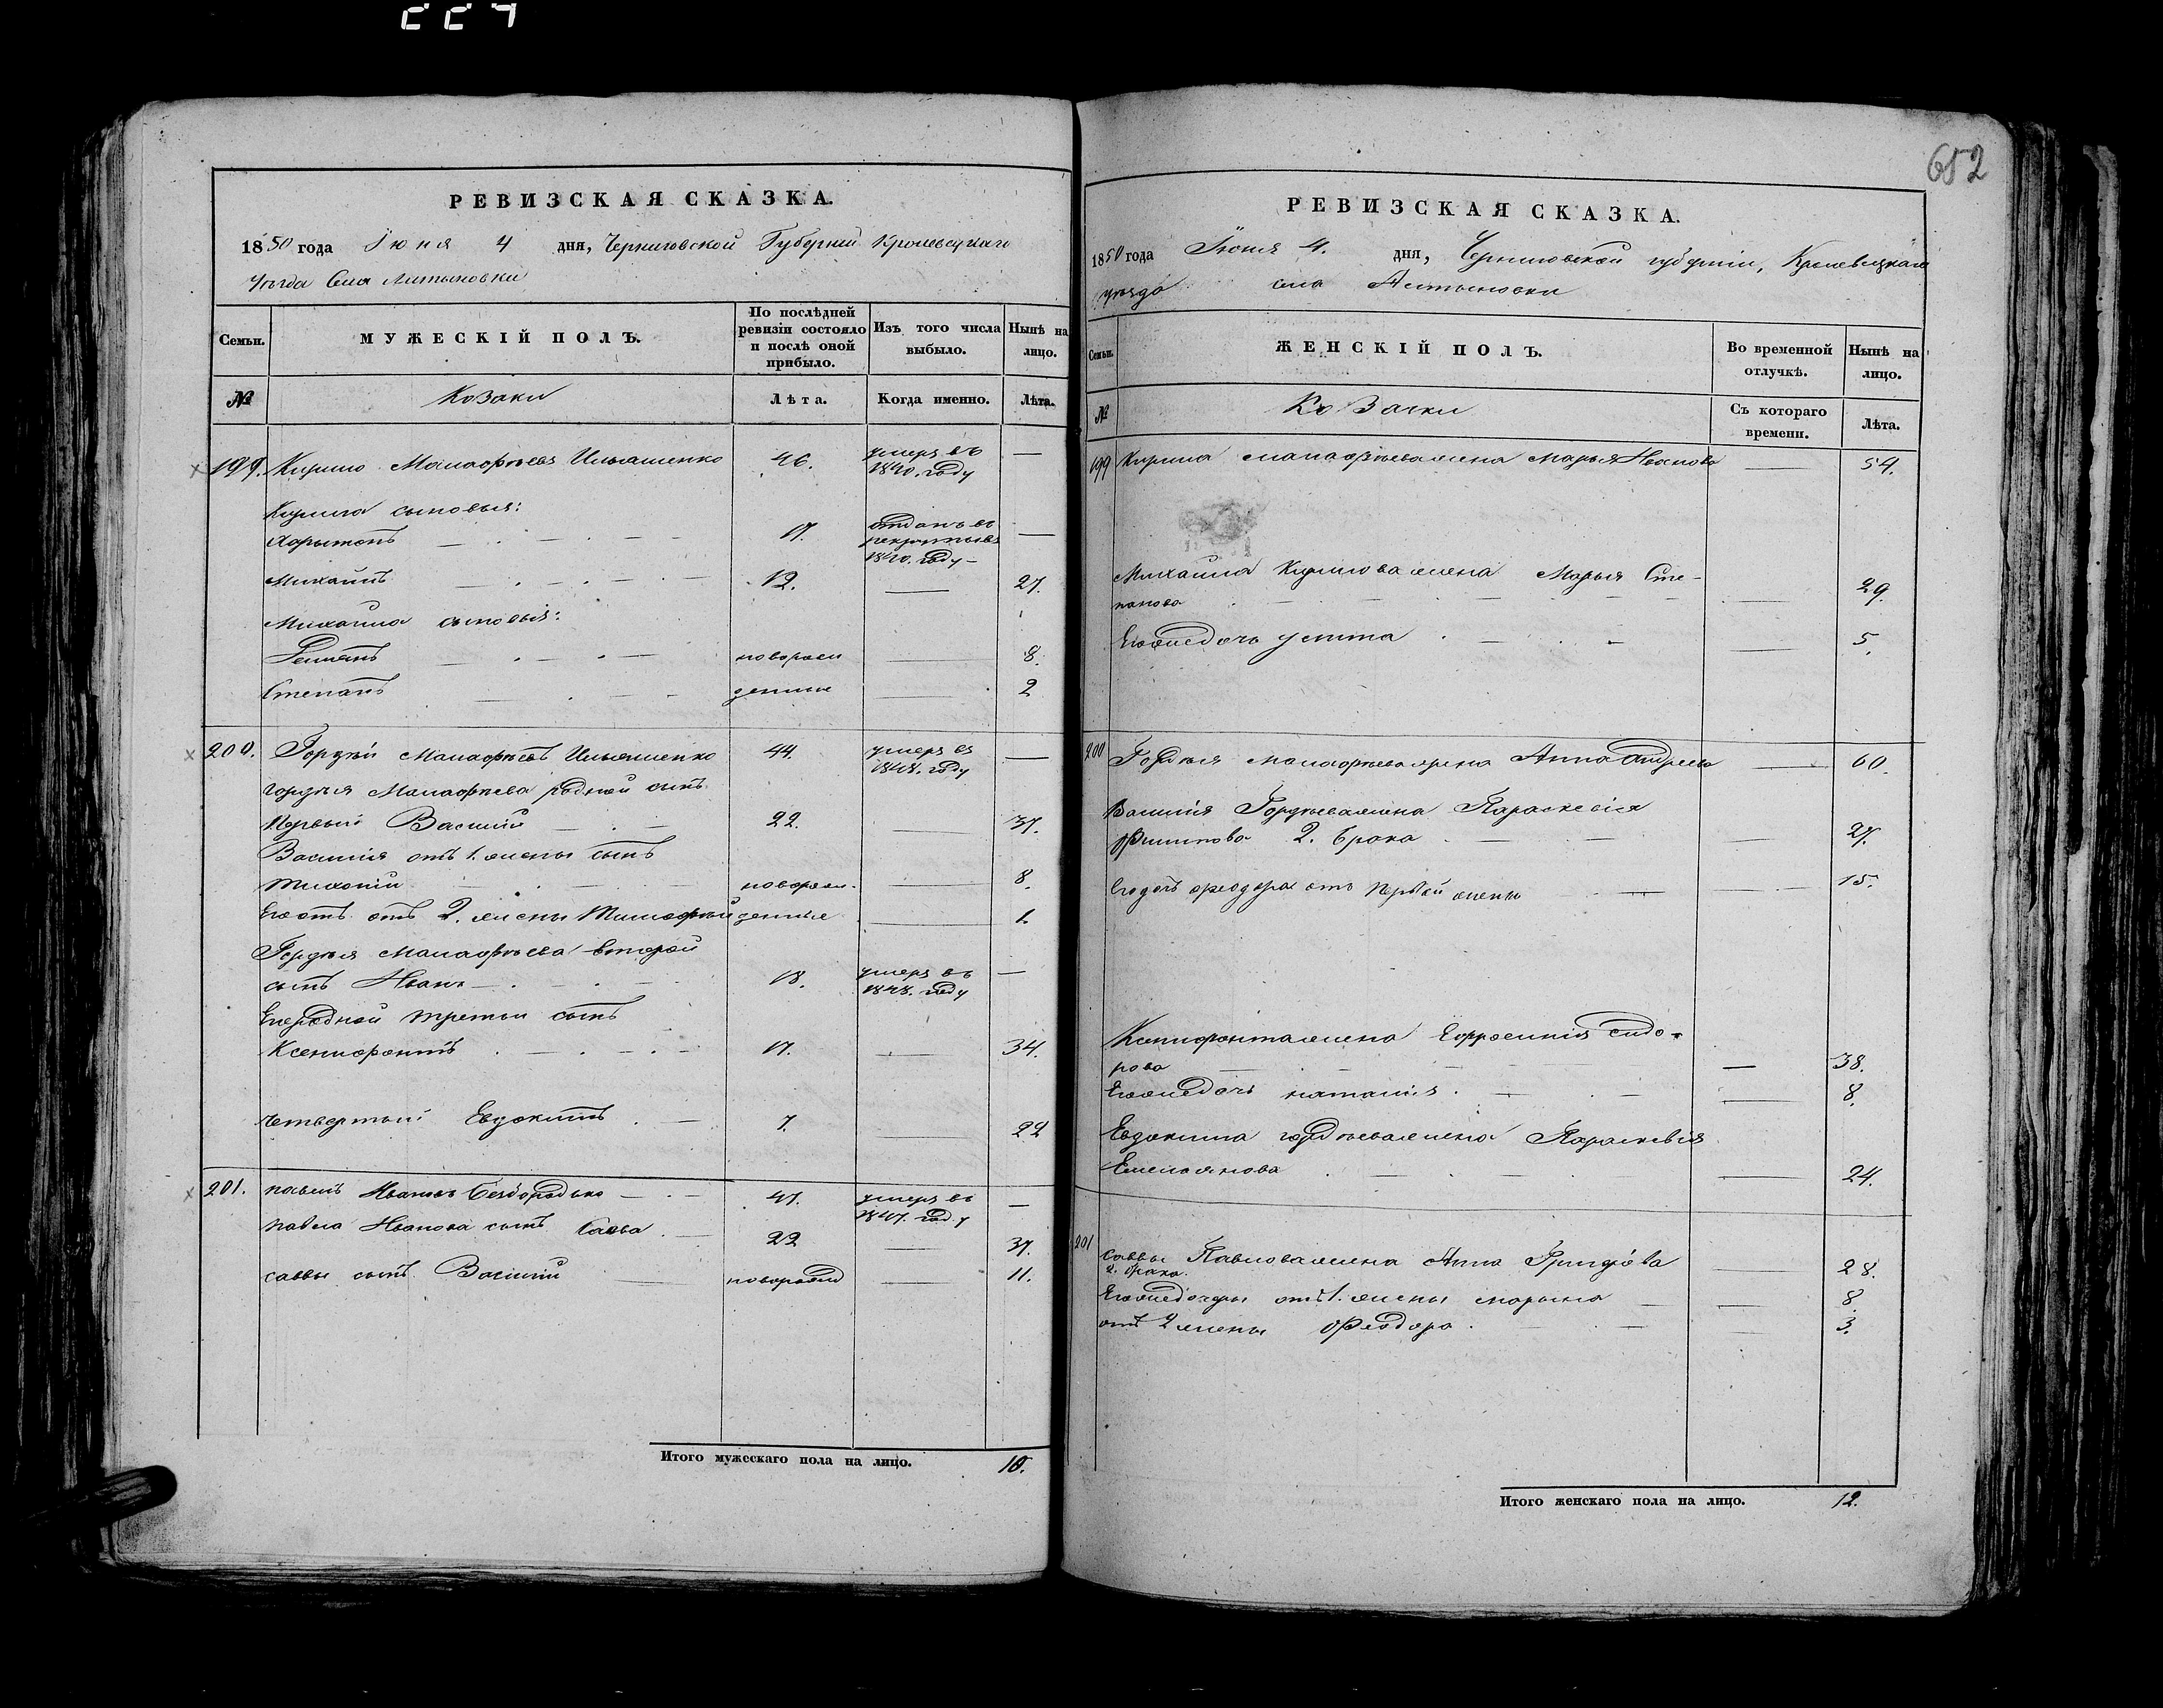 652
РЕВИЗСКАЯ СКАЗКА.
1850 года Іюня 4 дня, Черниговской Губерніи Кролевецкаго
уѣзда Села Литвиновки
Семьи. МУЖЕСКІЙ ПОЛЪ. По послѣдней ревизіи состояло и послѣ оной прибыло. Изъ того числа выбыло. Нынѣ на лицо.
№ Козаки Лѣта. Когда именно. Лѣта.
199. Кирило Малаофѣевъ Ильяшенко 46. умеръ въ 1840. году —
Кирила сыновья:
Харытонъ 17. отданъ въ рекруты въ 1840. году —
Михаилъ 12. — 27.
Михаила сыновья:
Романъ новорож — 8.
Степанъ денные — 2
200. Гордѣй Малаофѣевъ Ильяшенко 44. умеръ въ 1848. году —
Гордѣя Малаофѣева родной сынъ
первый Василій 22. — 37.
Василія отъ 1. жены сынъ
Тихоній новорож — 8.
Его отъ 2. жены Тимофей денные — 1.
Гордѣя Малаофѣева второй
сынъ Иванъ 18. умеръ въ 1848. году —
Его родной третий сынъ
Ксенофонтъ 17. — 34.
четвертый Евдокимъ 7. — 22
201. Павелъ Ивановъ Безбородько 47. умеръ въ 1847. году —
Павла Иванова сынъ Савва 22 — 37.
Саввы сынъ Василий новорожд — 11.
Итого мужескаго пола на лицо. 10.
РЕВИЗСКАЯ СКАЗКА.
1850 года Іюня 4. дня, Черниговской губерніи, Кролевецкаго
уѣзда села Литвиновки
Семьи. ЖЕНСКІЙ ПОЛЪ. Во временной отлучкѣ. Нынѣ на лицо.
№ Козачки Съ котораго времени. Лѣта.
199 Кирила Малаофѣева жена Марья Иванова — 54.
Михаила Кирилова жена Марья Сте-
панова — 29.
Его же дочь Улита — 5.
200 Гордѣя Малаофѣева жена Анна Андреева — 60.
Василія Гордѣева жена Параскевія
Филипова 2. брака — 27.
Его дочь Феодора отъ первой жены — 15.
Ксенофонта жена Ефросинія Сидо-
рова — 38.
Его же дочь Наталия — 8.
Евдокима Гордѣева жена Параскевія
Емельянова — 24.
201 Саввы Павлова жена Анна Григорьева — 28.
2. брака.
Его же дочери отъ 1. жены Марына — 8.
отъ 2 жены Феодора — 3.
Итого женскаго пола на лицо. 12.